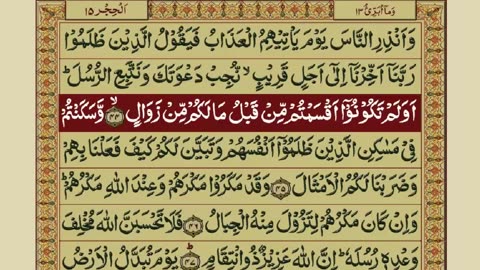 وَمَاۤ اُبَرِّئُ ١٣ اَلْحِجْر ١٥
وَاَنْذِرِ النَّاسَ يَوْمَ يَاْتِيْهِمُ الْعَذَابُ فَيَقُوْلُ الَّذِيْنَ ظَلَمُوْا
رَبَّنَاۤ اَخِّرْنَاۤ اِلٰۤى اَجَلٍ قَرِيْبٍۙ نُّجِبْ دَعْوَتَكَ وَنَتَّبِعِ الرُّسُلَؕ
اَوَلَمْ تَكُوْنُوْۤا اَقْسَمْتُمْ مِّنْ قَبْلُ مَا لَكُمْ مِّنْ زَوَالٍۙ ﴿۴۴﴾ وَّسَكَنْتُمْ
فِيْ مَسٰكِنِ الَّذِيْنَ ظَلَمُوْۤا اَنْفُسَهُمْ وَتَبَيَّنَ لَكُمْ كَيْفَ فَعَلْنَا بِهِمْ
وَضَرَبْنَا لَكُمُ الْاَمْثَالَ ﴿۴۵﴾ وَقَدْ مَكَرُوْا مَكْرَهُمْ وَعِنْدَ اللّٰهِ مَكْرُهُمْؕ
وَاِنْ كَانَ مَكْرُهُمْ لِتَزُوْلَ مِنْهُ الْجِبَالُ ﴿۴۶﴾ فَلَا تَحْسَبَنَّ اللّٰهَ مُخْلِفَ
وَعْدِهٖ رُسُلَهٗؕ اِنَّ اللّٰهَ عَزِيْزٌ ذُو انْتِقَامٍؕ ﴿۴۷﴾ يَوْمَ تُبَدَّلُ الْاَرْضُ